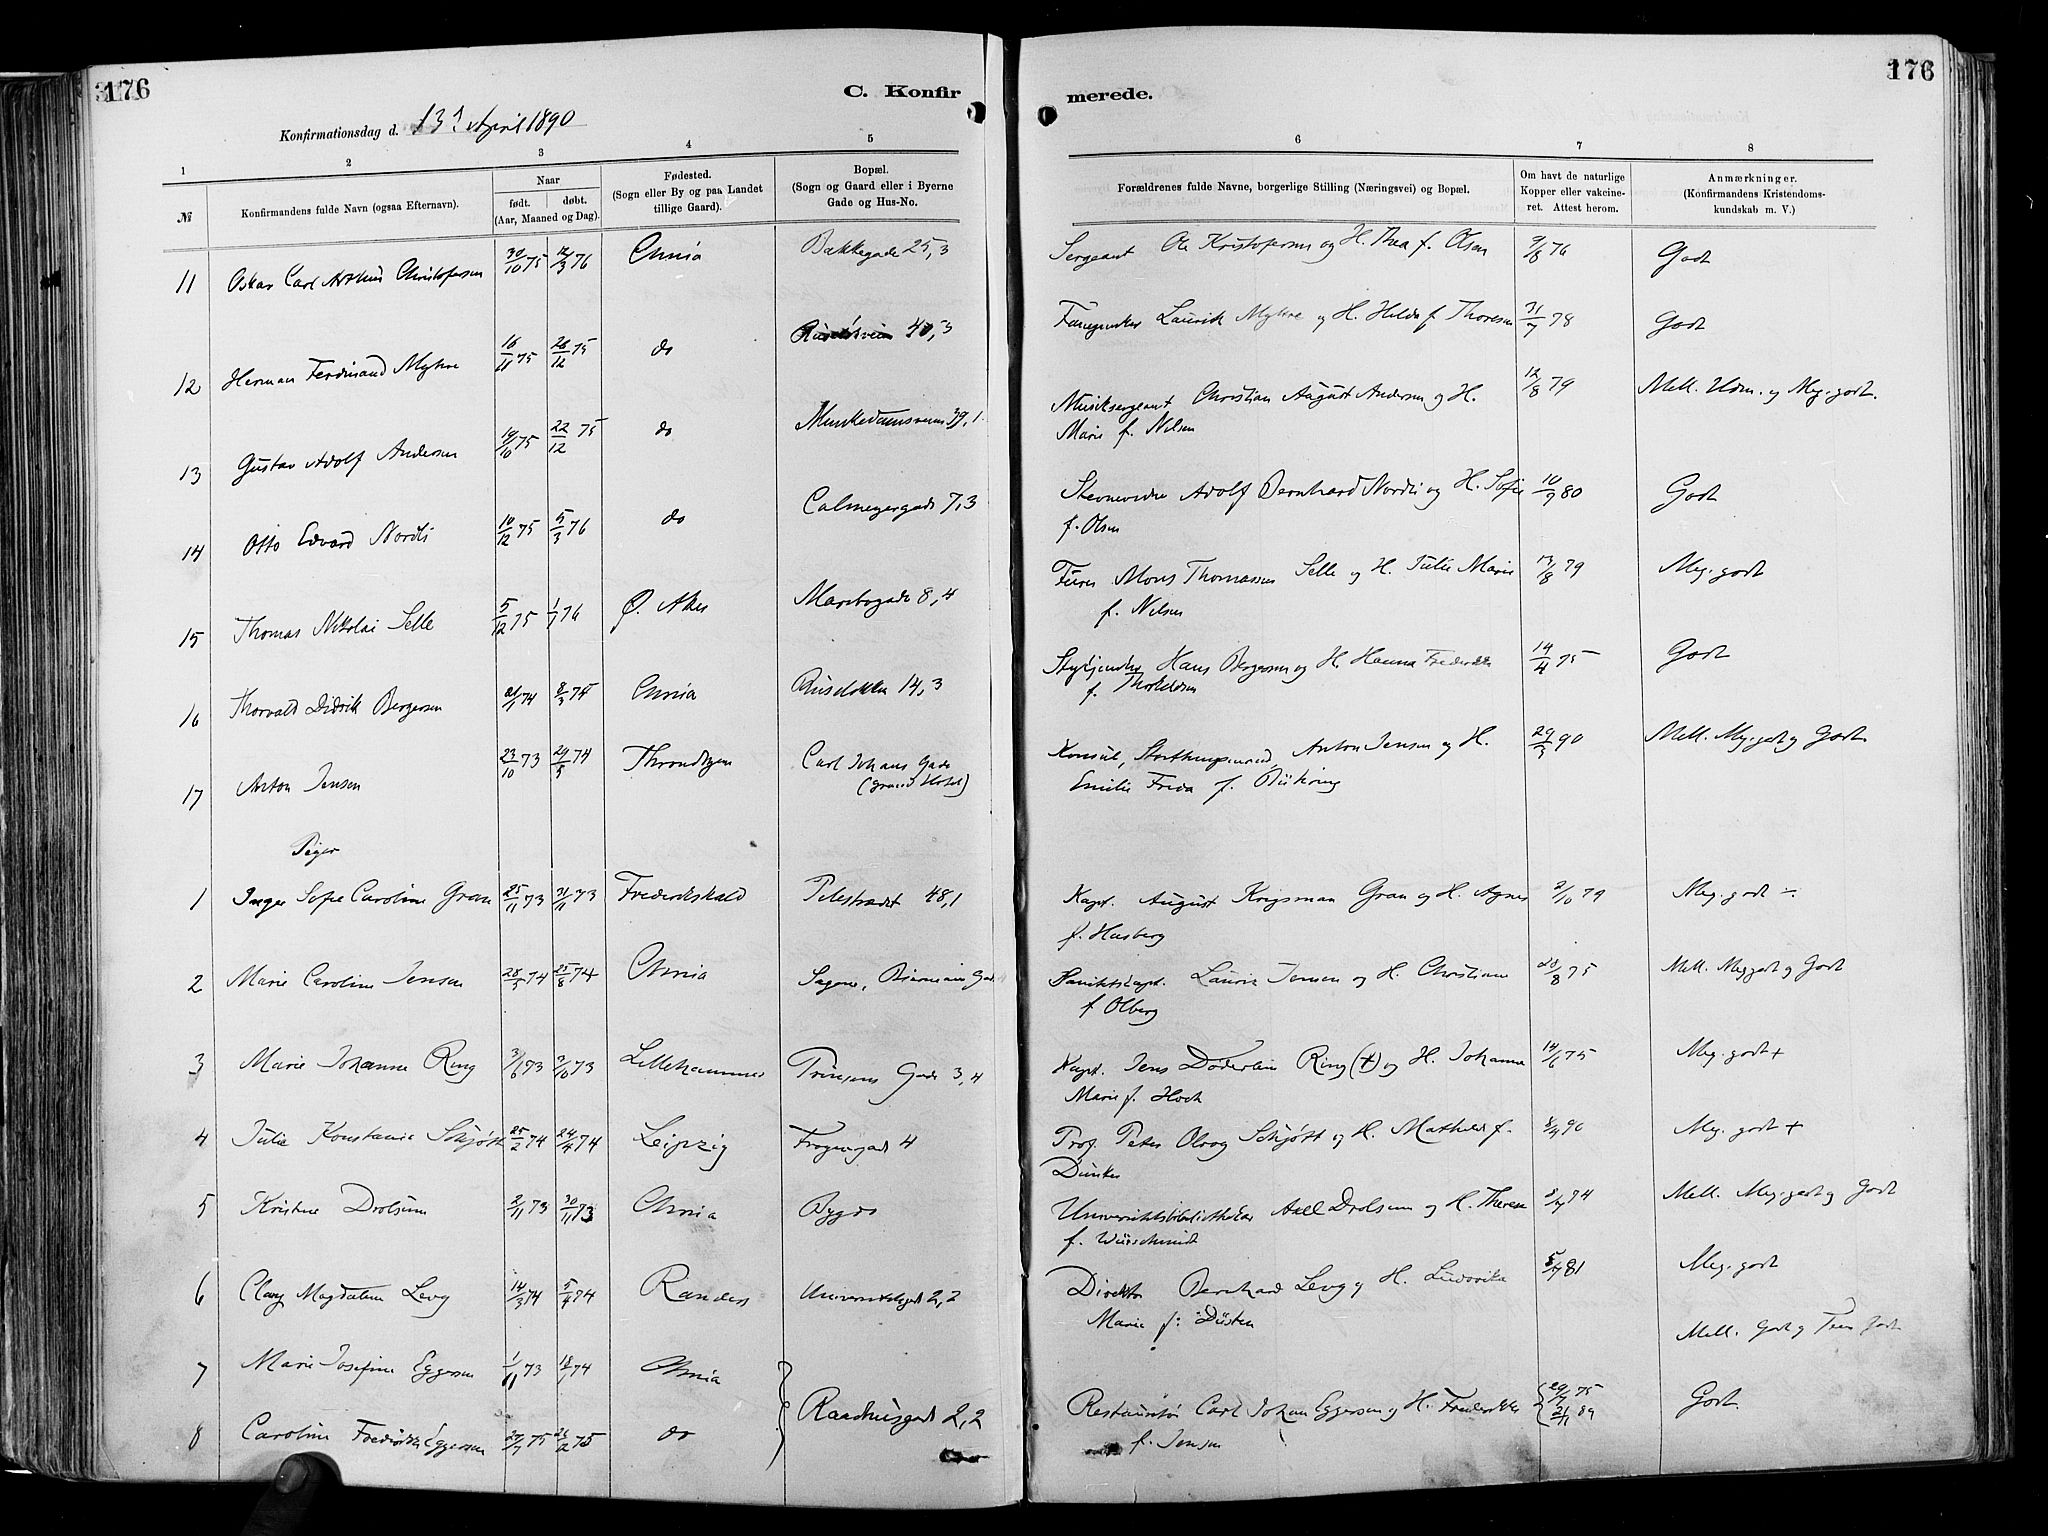 176
C. Konfir
merede.
176
Konfirmationsdag d. 13. April 1890
1 2 3 4 5 6 7 8
№
Konfirmandens fulde Navn (ogsaa Efternavn).
Naar
født. døbt.
(Aar, Maaned og Dag).
Fødested.
(Sogn eller By og paa Landet
tillige Gaard).
Bopæl.
(Sogn og Gaard eller i Byerne
Gade og Hus-No.
Forældrenes fulde Navne, borgerlige Stilling (Næringsvei) og Bopæl.
Om havt de naturlige
Kopper eller vakcine-
ret. Attest herom.
Anmærkninger.
(Konfirmandens Kristendoms-
kundskab m. V.)
11 Oskar Carl Arthur Christofersen 30/10 75 12/3 76 Chria Bakkegade 25,3 Sergeant Ole Kristofersen og H. Thea f. Olsen 9/8 76 Godt
12 Herman Ferdinand Myhre 16/11 75 26/12 75 do 40,3 Laurik Myhre og H. Hilda f. Thoresen 31/7 78 Godt
13 Gustav Adolf Andersen 19/10 75 22/12 75 do Munkedamsveien 39,1 Musiksergeant Christian August Andersen og H. 12/8 79 Mell. Udm. og Meg. godt.
Marie f. Nilsen
14 Otto Edvard Nordli 10/12 75 5/3 76 do Calmeyergade 7,3 Adolf Bernhard Nordli og H. Sofie 10/9 80 Godt
f. Olsen
15 Thomas Nikolai Selle 5/12 75 1/1 76 Ø. Aker Maribogade 8,4 Mons Thomassen Selle og H. Julie Marie 13/8 79 Meg. godt
f. Nelsen
16 Thorvald Didrik Bergersen 21/1 74 8/3 75 Chria Ruseløkken 14,3 Hans Bergersen og H. Hanna Fredrikke 14/4 75 Godt
f. Thorkildsen
17 Anton Jensen 23/10 73 24/5 74 Throndhjem Carl Johans Gade Konsul, Storthingsmand, Anton Jensen og H. 29/3 90 Mell. Meg. godt og Godt
(Grand Hotel)
Emilie Frida f. Büchring
Piger
1 Inga Sofie Caroline Gran 25/11 73 31/11 73 Frederikshald Pilestrædet 48,1 Kapt. August Krigsman Gran og H. Agnes 2/10 79 Meg. godt ÷
f. Husberg
2 Marie Caroline Jensen 28/5 74 25/8 74 Chria Sagene, Laurits Jensen og H. Christiane 28/8 75 Mell. Meg godt og Godt
f. Olberg
3 Marie Johanne Ring 3/6 73 3/10 73 Lillehammer Gade 3,4 Kapt. Jens Døderlein Ring (+) og H. Johanne 14/6 75 Meg. godt +
Marie f. Hoch
4 Julie Konstanse Schjøtt 25/2 74 24/4 74 Leipzig Frognergade 4 Prof. Peter Olrog Schjøtt og H. Mathilde f. 8/4 90 Meg. godt +
Dunker
5 Kristine Drolsum 2/11 73 30/11 73 Chria Bygdø Universitetsbibliothekar Axel Drolsum og H. Therese 8/7 74 Mell. Meg. godt og Godt
f. Würschmidt
6 Clary Magdalene Levy 14/3 74 5/4 74 Randers Universitetsgade 2,2 Direktør Bernhard Levy og H. Ludovika 5/7 81 Meg. godt
Marie f. Düsten
Mell. Godt og Tem. Godt
7 Marie Josefine Eggersen 1/11 73 18/1 74 Chria
Raadhusgade 2,2 Restauratør Carl Johan Eggersen og H. Fredrikke 29/6 75 Godt
21/1 89
8 Caroline Fredrikke Eggersen 27/7 75 26/12 75 do f. Jensen